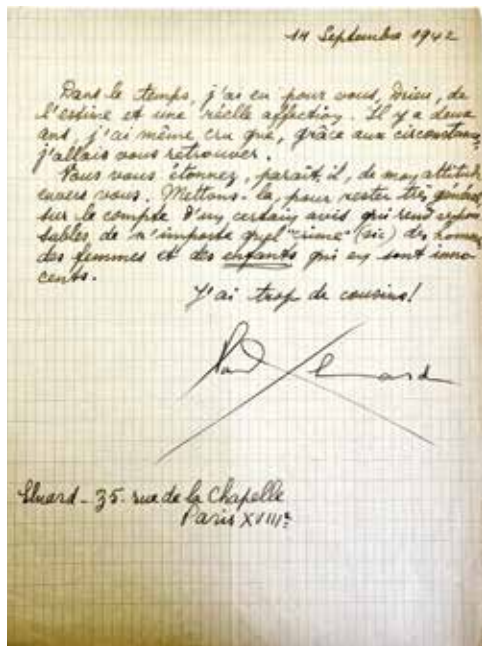 14 Septembre 1942
Dans le temps, j'ai eu pour vous, Drieu, de
l'estime et une réelle affection. Il y a deux
ans, j'ai même cru que, grâce aux circonstances
j'allais vous retrouver.
Vous vous étonnez, paraît-il, de mon attitude
envers vous. Mettons-la, pour rester très général,
sur le compte d'un certain avis qui rend respon
sables de n'importe quel "crime" (sic) des hommes
des femmes et des enfants qui en sont inno
cents.
J'ai trop de cousins!
Paul Eluard
Eluard - 35. rue de la Chapelle
Paris XVIIIe